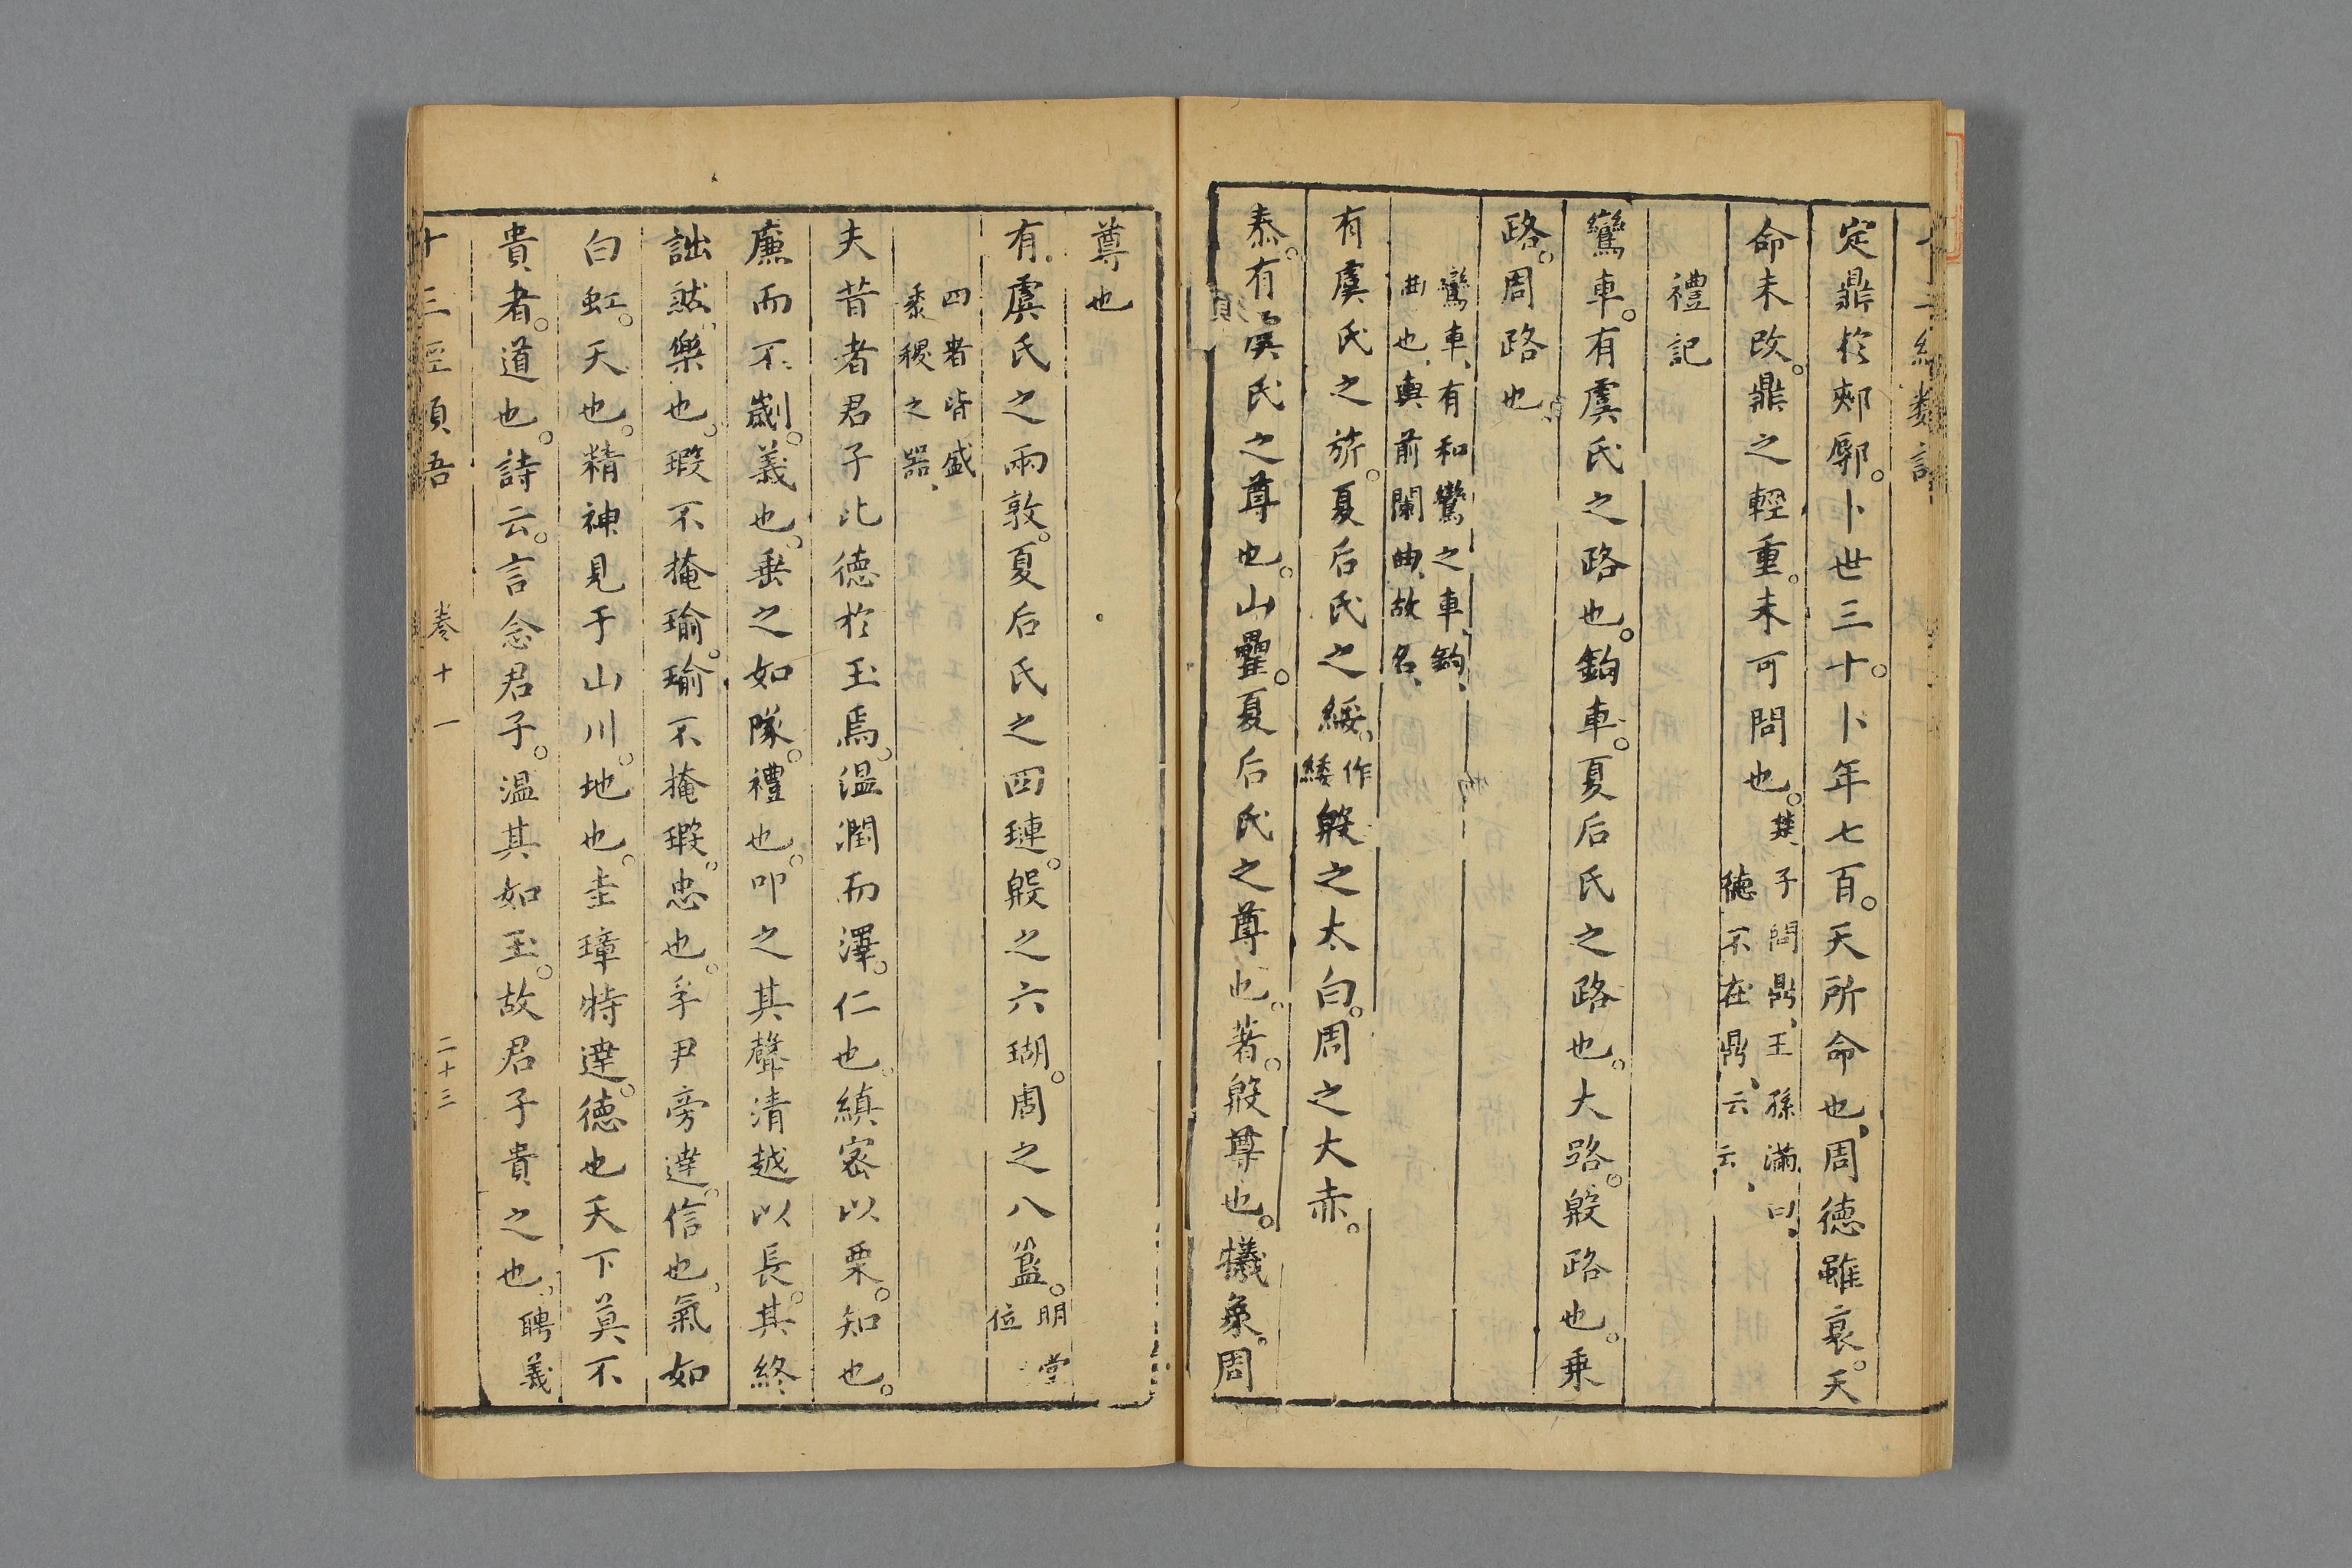 定鼎於郟鄏卜世三十卜年七百天所命也周德雖衰天
命未改鼎之輕重未可問也楚子問鼎王孫滿曰
德不在鼎云云
禮記
鸞車有虞氏之路也鉤車夏后氏之路也大路殷路也乘
路周路也
鸞車有和鸞之車鉤
曲也輿前闌曲故名
有虞氏之旂夏后氏之綏作
緌殷之太白周之大赤
泰有虞氏之尊也山罍夏后氏之尊也著殷尊也犧象周
尊也
有虞氏之兩敦夏后氏之四璉殷之六瑚周之八簋明堂
位
四者皆盛
黍稷之器
夫昔者君子比德於玉焉溫潤而澤仁也縝密以栗知也
廉而不劌義也垂之如隊禮也叩之其聲清越以長其終
詘然樂也瑕不掩瑜瑜不掩瑕忠也孚尹旁達信也氣如
白虹天也精神見于山川地也圭璋特達德也天下莫不
貴者道也詩云言念君子溫其如玉故君子貴之也聘義
卷十一
二十三